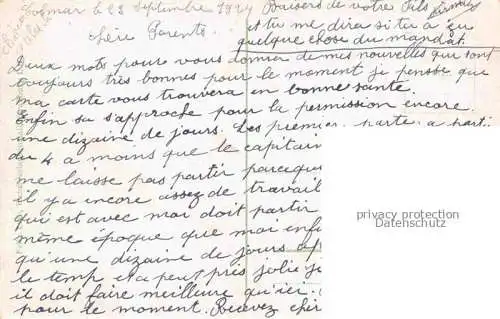 Colmar le 23 Septembre 1924 Baisers de votre Fils
chère Parents. et tu me diras si tu a eu
quelque chose du mandat.
Deux mots pour vous donner de mes nouvelles qui sont
toujours très bonnes pour le moment je pensse que
ma carte vous trouvera en bonne santé.
Enfin sa s'approche pour la permission encore
une dizaine de jours. Les premier parte a parti
du 4 a moins que le capitain
me laisse pas partir parceque
il y a encore assez de travail
qui est avec moi doit partir
même époque que moi enfi
qu'une dizaine de jours
le temp et a peut près jolie
il doit faire meilleure qu'ici
pour le moment. Recevez chèr
privacy protection
Datenschutz